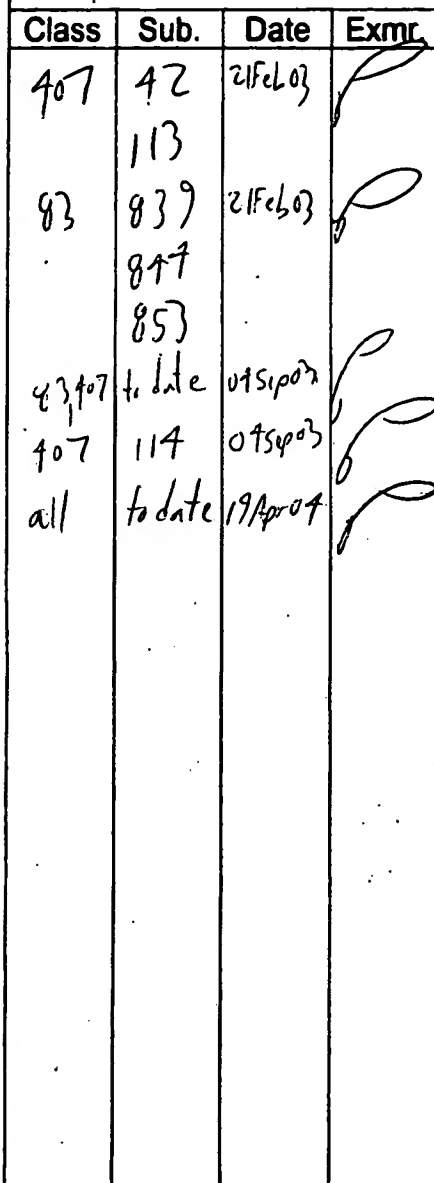 Class Sub. Date Exmr.
407 42 21Feb03
113
83 839 21Feb03
847
853
83,407 to date 04Sep03
407 114 04Sep03
all to date 19Apr04